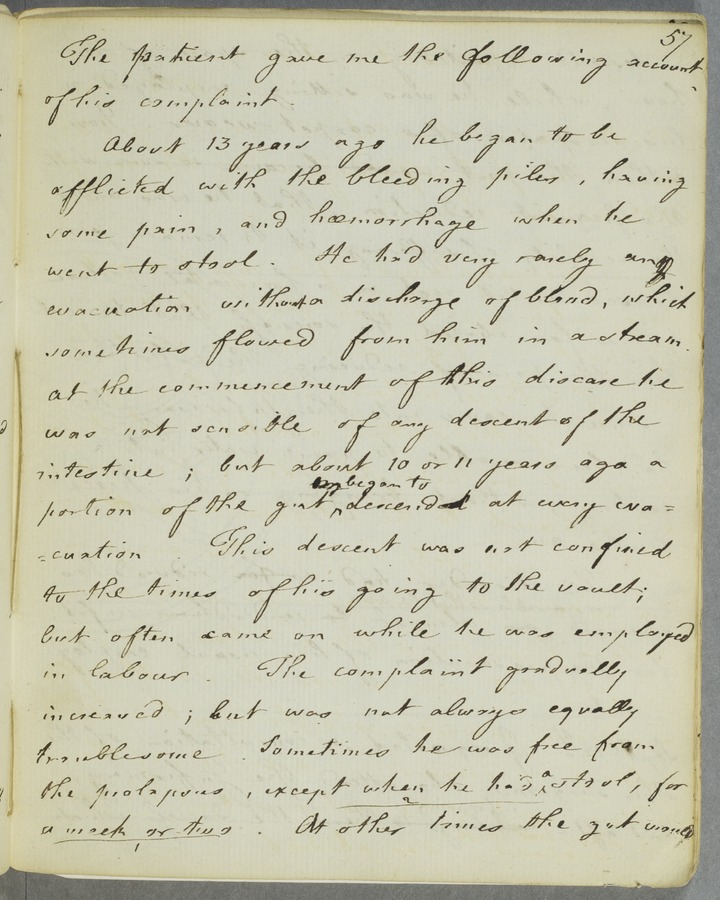 57
The patient gave me the following account
of his complaint.
About 13 years ago he began to be
afflicted with the bleeding piles, having
some pain, and hæmorrhage when he
went to stool. He had very rarely any
evacuation without a discharge of blood, which
sometimes flowed from him in a stream.
at the commencement of this disease he
was not sensible of any descent of the
intestine; but about 10 or 11 years ago a
began to
portion of the gut descend at every eva=
=cuation. This descent was not confined
to the times of his going to the vault;
but often came on while he was employed
in labour. The complaint gradually
increased; but was not always equally
troublesome. Sometimes he was free from
the prolapsus, except when he had a stool, for
a week or two. At other times the gut would